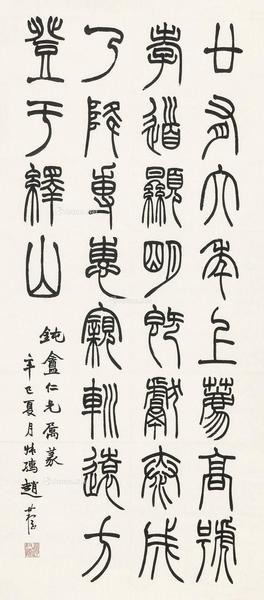 廿有六年上薦高號
孝道顯明既獻泰成
乃降尃惠寴䡅遠方
登于繹山
鈍盦仁兄屬篆
辛巳夏月 趙